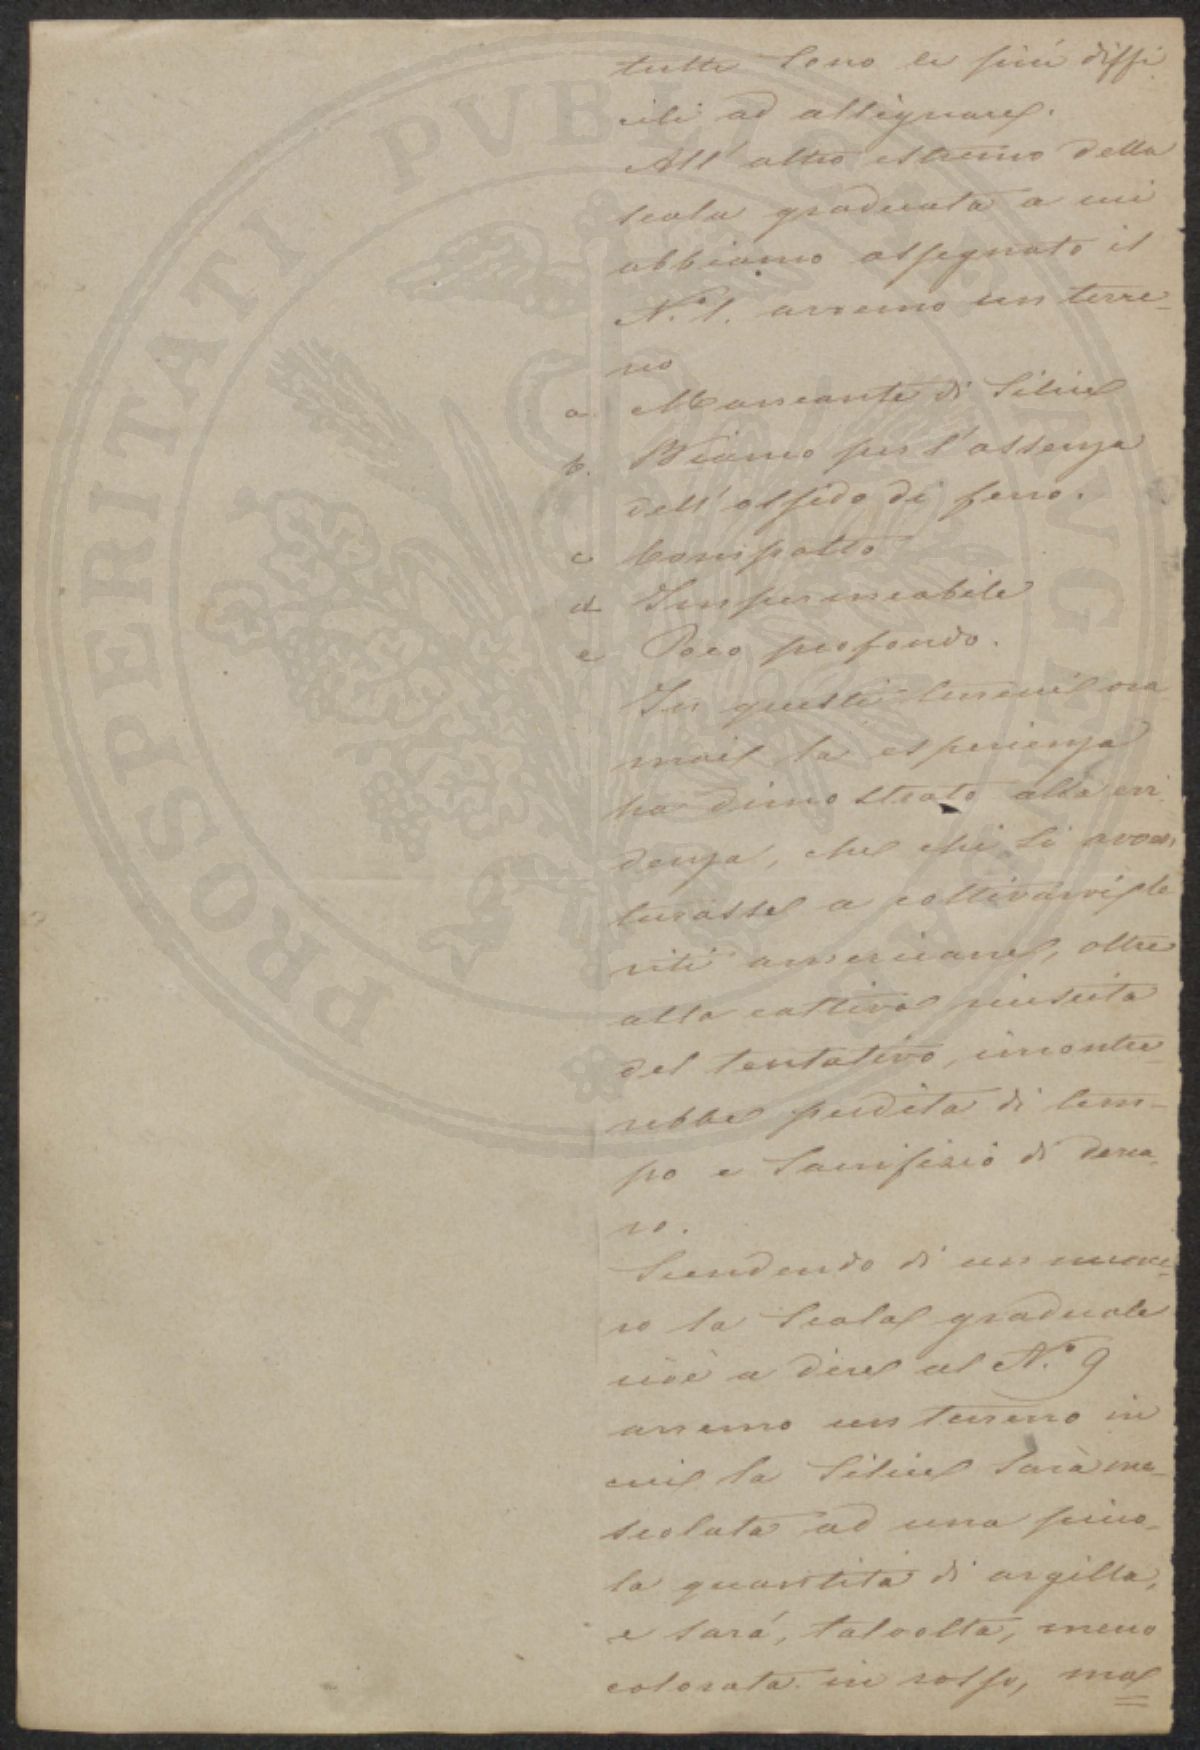 tutte sono le più diffi
cili ad allignare.
All'altro estremo della
scala graduata a cui
abbiamo assegnato il
N.º 1. avremo un terre-
no
a Mancante di Silice
b. Bianco per l'assenza
dell'ossido di ferro.
c Compatto
d Impermeabile
e Poco profondo.
In questi terreni ora
mai la esperienza
ha dimostrato alla evi
denza, che chi si avven
turasse a coltivarvi le
viti americane, oltre
alla cattiva riuscita
del tentativo, incontre-
rebbe perdita di tem-
po e Sacrifizio di dena-
ro.
Scendendo di un nume-
ro la Scala graduale
cioè a dire al N.º 9
avremo un terreno in
cui la Silice Sarà me-
scolata ad una picco-
la quantità di argilla,
e sarà, talvolta, meno
colorata in rosso, ma
PROSPERITATI PVBLICAE AVGENDAE